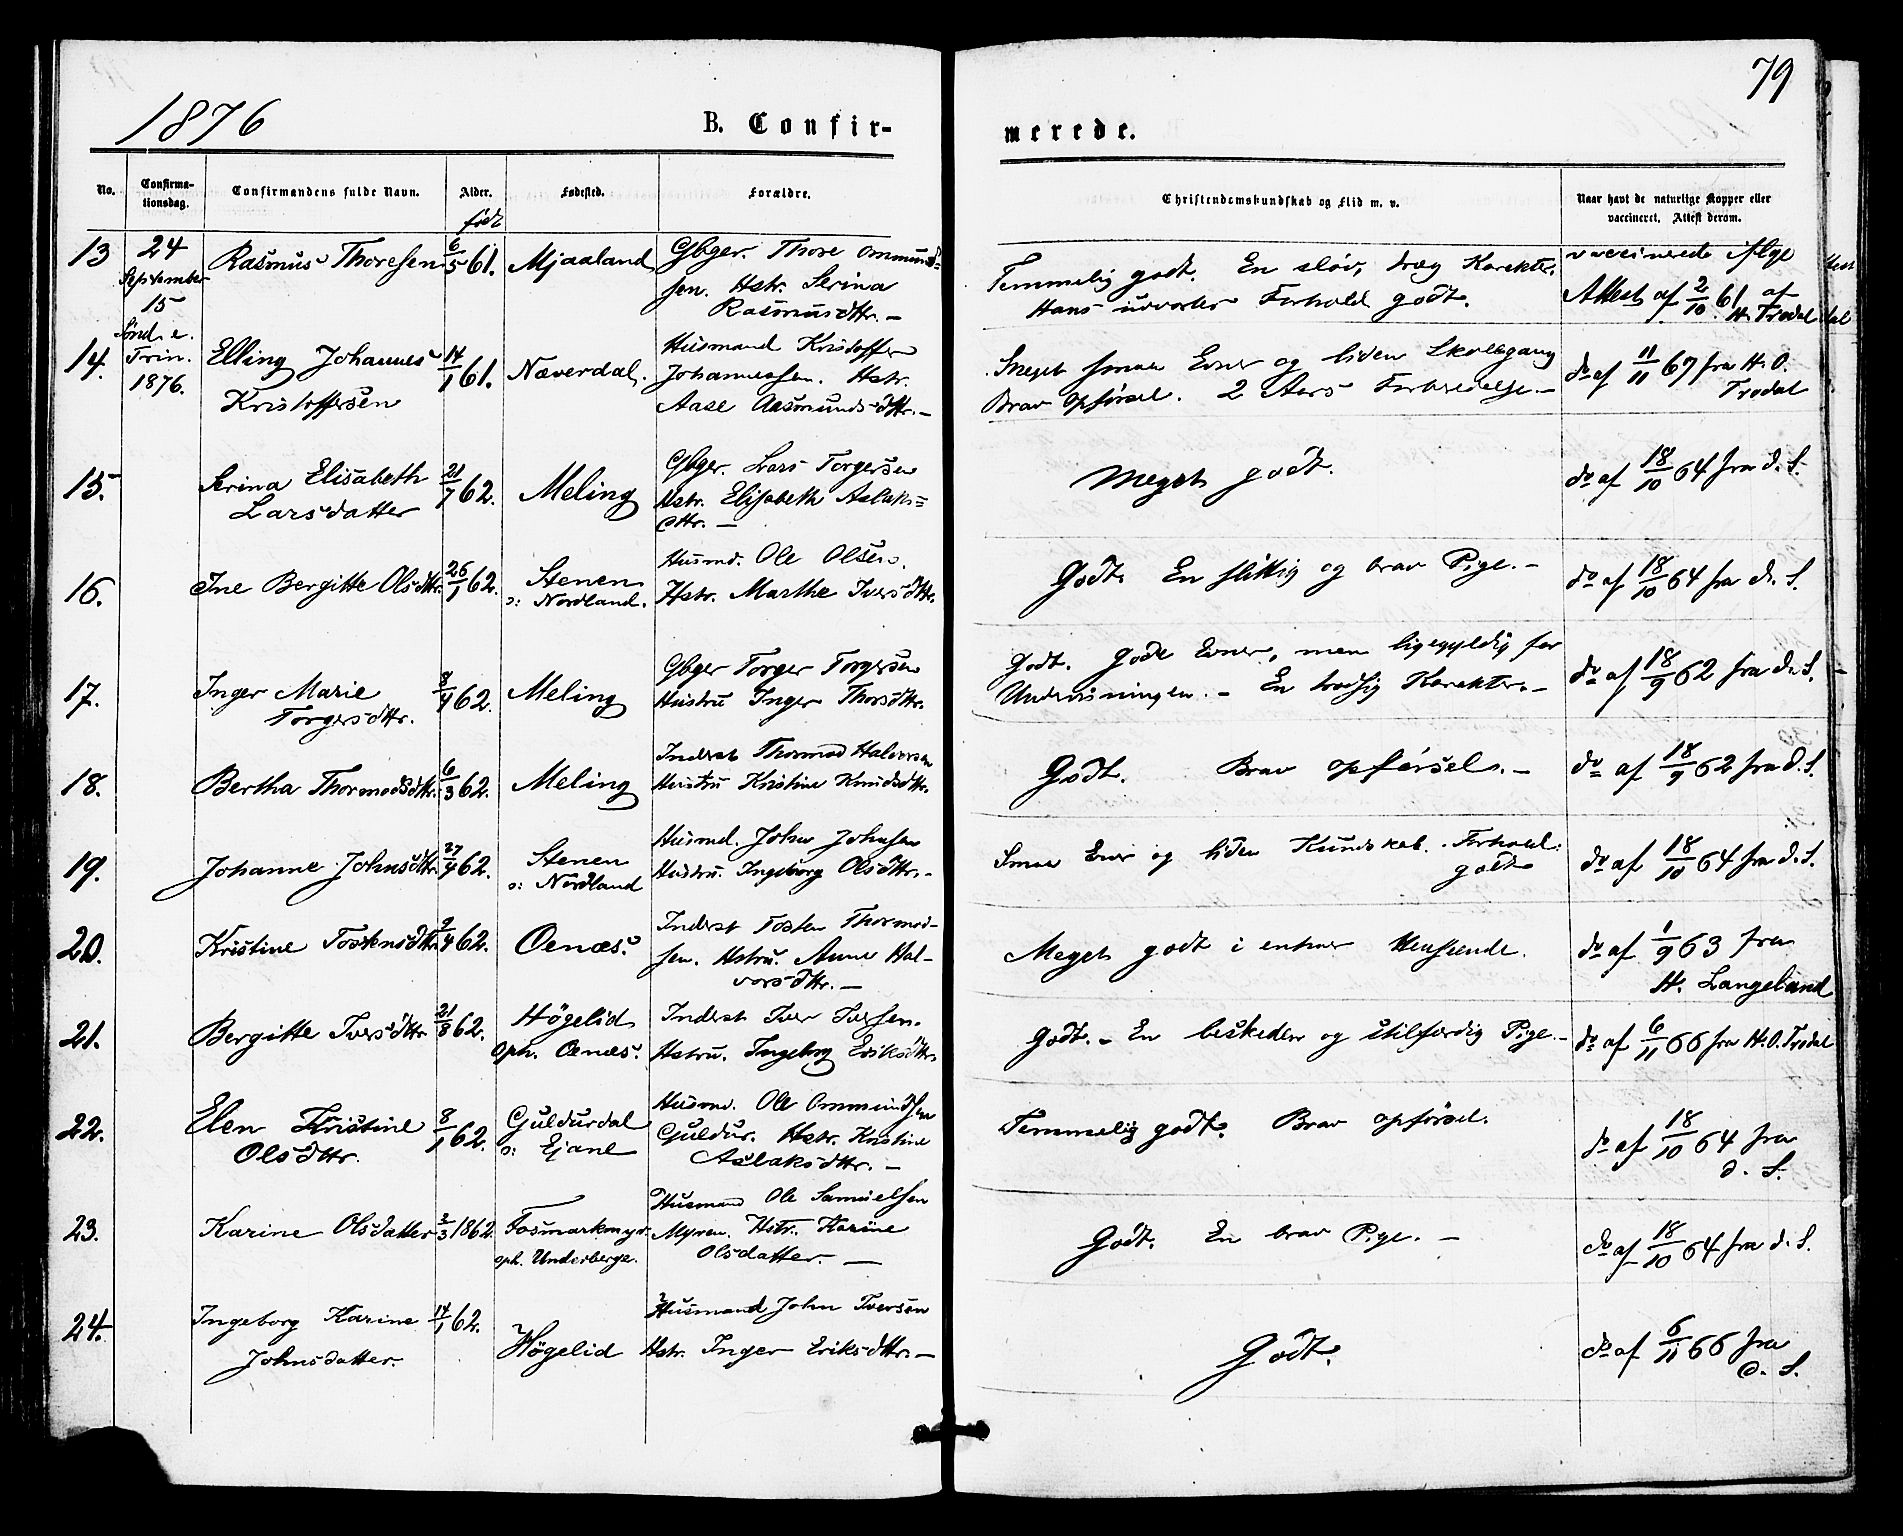 79
1876 B. Confir- merede.
No. Confirma-tionsdag. Confirmandens fulde Navn. Alder. Fødested. Forældre. Christendomskundskab og Flid m. v. Naar havt de naturlige Kopper eller vaccineret. Attest derom.
født
13 24 September 15 Sønd. e. Trin. 1876. Rasmus Thoresen 6/5 61. Mjaaland Gbger. Thore Ommund-
sen. Hstr. Serina
Rasmusdttr. —
Temmelig godt. En sløv, træg Karakter.
Hans udvortes Forhold godt.
vaccinerede ifølge
Attest af 2/10 61 af
H. Trodal
14. Elling Johannes 14/1 61. Næverdal. Husmand Kristoffer
Kristoffersen Johannessen. Hstr.
Aase Aasmundsdttr. —
Meget smaa Evner og liden Skolegang
Brav Opførsel. 2 Aars Forberedelse. —
do af 11/11 67 fra H. O.
Trodal
15. Serina Elisabeth 21/7 62. Meling Gbger. Lars Torgersen
Larsdatter Hstr. Elisabeth Aslaks=
dttr. —
Meget godt.
do af 18/10 64 fra d. S.
16. Ine Bergitte Olsdttr. 26/1 62. Stenen Husmd. Ole Olsen.
o: Nordland. Hstr. Marthe Iversdttr.
Godt. En flittig og brav Pige. —
do af 18/10 64 fra d. S.
17. Inger Marie 62. Meling Gbger Torger Torgersen
Torgersdttr. Hustru Inger Thorsdttr.
Godt. Gode Evner, men ligegyldig for
Undervisningen. — En trodsig Karakter. —
do af 18/9 62 fra d. S. —
18. Bertha Thormodsdttr. 6/3 62. Meling Inderst Thormod Halvorsen
Hustru Kristine Knudsdttr.
Godt. Brav opførsel. —
do af 18/9 62 fra d. S.
19. Johanne Johnsdttr. 27/4 62. Stenen Husmd. John Johnsen
o: Nordland Hustru. Ingeborg Olsdttr. —
Smaa Evner og liden Kundskab. Forhold:
godt
do af 18/10 64 fra d. S.
20. Kristine Tostensdttr. 9/4 62. Oenæs. Inderst Tosten Thormod-
sen. Hstru. Anne Hal-
vorsdttr. —
Meget godt i enhver Henseende.
do af 1/9 63 fra
H. Langeland
21. Bergitte Iversdttr 21/8 62. Högelid Inderst Iver Iversen.
Oph. Oenæs. Hstru. Ingeborg Eriksdttr.
Godt. — En beskeden og stilfærdig Pige. —
do af 6/11 66 fra H. O. Trodal
22. Elen Kristine 8/1 62. Guldurdal Husmd. Ole Ommundsen
Olsdttr. o: Ejane Guldur. Hstr. Kristine
Aslaksdttr. —
Temmelig godt. Brav opførsel.
do af 18/10 64 fra
d. S.
23. Karine Olsdatter 2/3 1862 Fosmarkmyr. Husmand Ole Samuelsen
oph. Underberge. Myren. Hstr. Karine
Olsdatter. —
Godt. En brav Pige. —
do af 18/10 64 fra d. S.
24. Ingeborg Karine 14/1 62. Högelid Husmand John Iversen
Johnsdatter. Hstr. Inger Eriksdttr. —
Godt.
do af 6/11 66 fra
d. S.